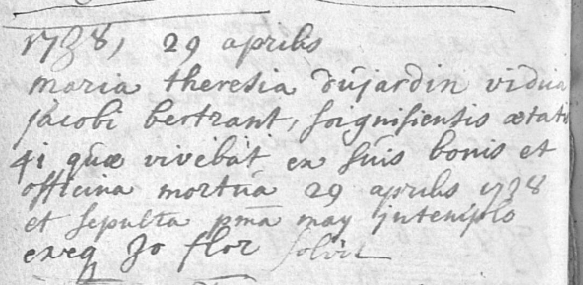 1738, 29 aprilis
maria theresia dujardin vidua
jacobi bertrant, soignisiensis ætati
41 quæ vivebat ex suis bonis et
officina mortua 29 aprilis 1738
et sepulta pma may in templo
exeq 30 flor solvit